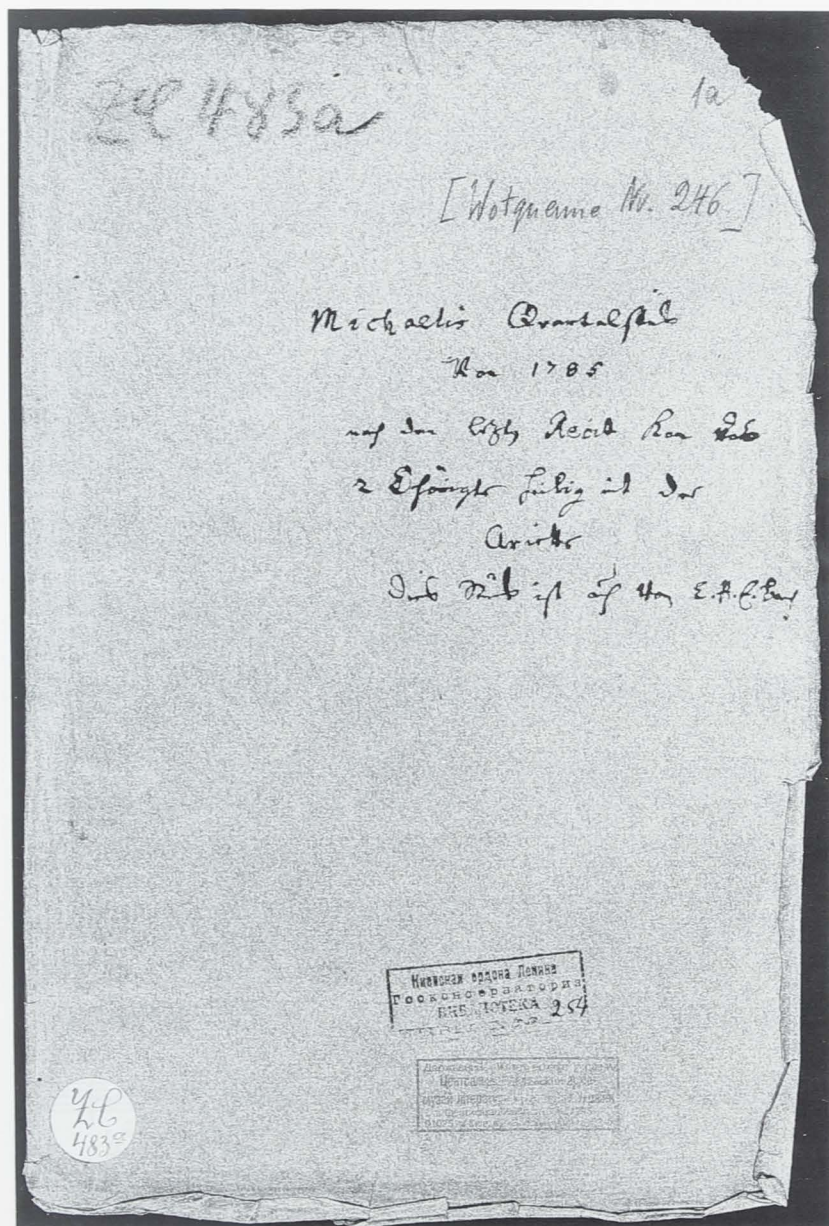 ZC 483a
1a
[Wotquenne Nr. 246]
Michaelis Quartalstück
Von 1785
nach den letzten Recit kan das
2 Chörigte Heilig mit der
Ariette
Dies Stück ist auch von C. P. E. Bach
Киевская ордена Ленина
Госконсерватория
БИБЛИОТЕКА 254
ZC
483a